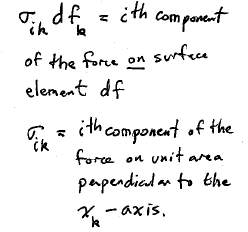 σ_ik df_k = ith component
of the force on surface
element df
σ_ik = ith component of the
force on unit area
perpendicular to the
x_k - axis.